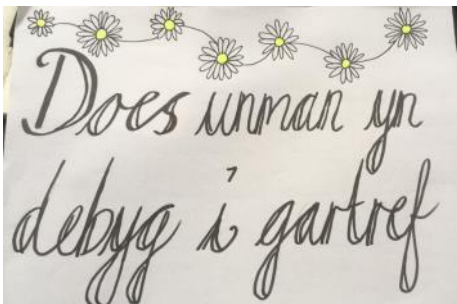 Does unman yn
debyg i gartref